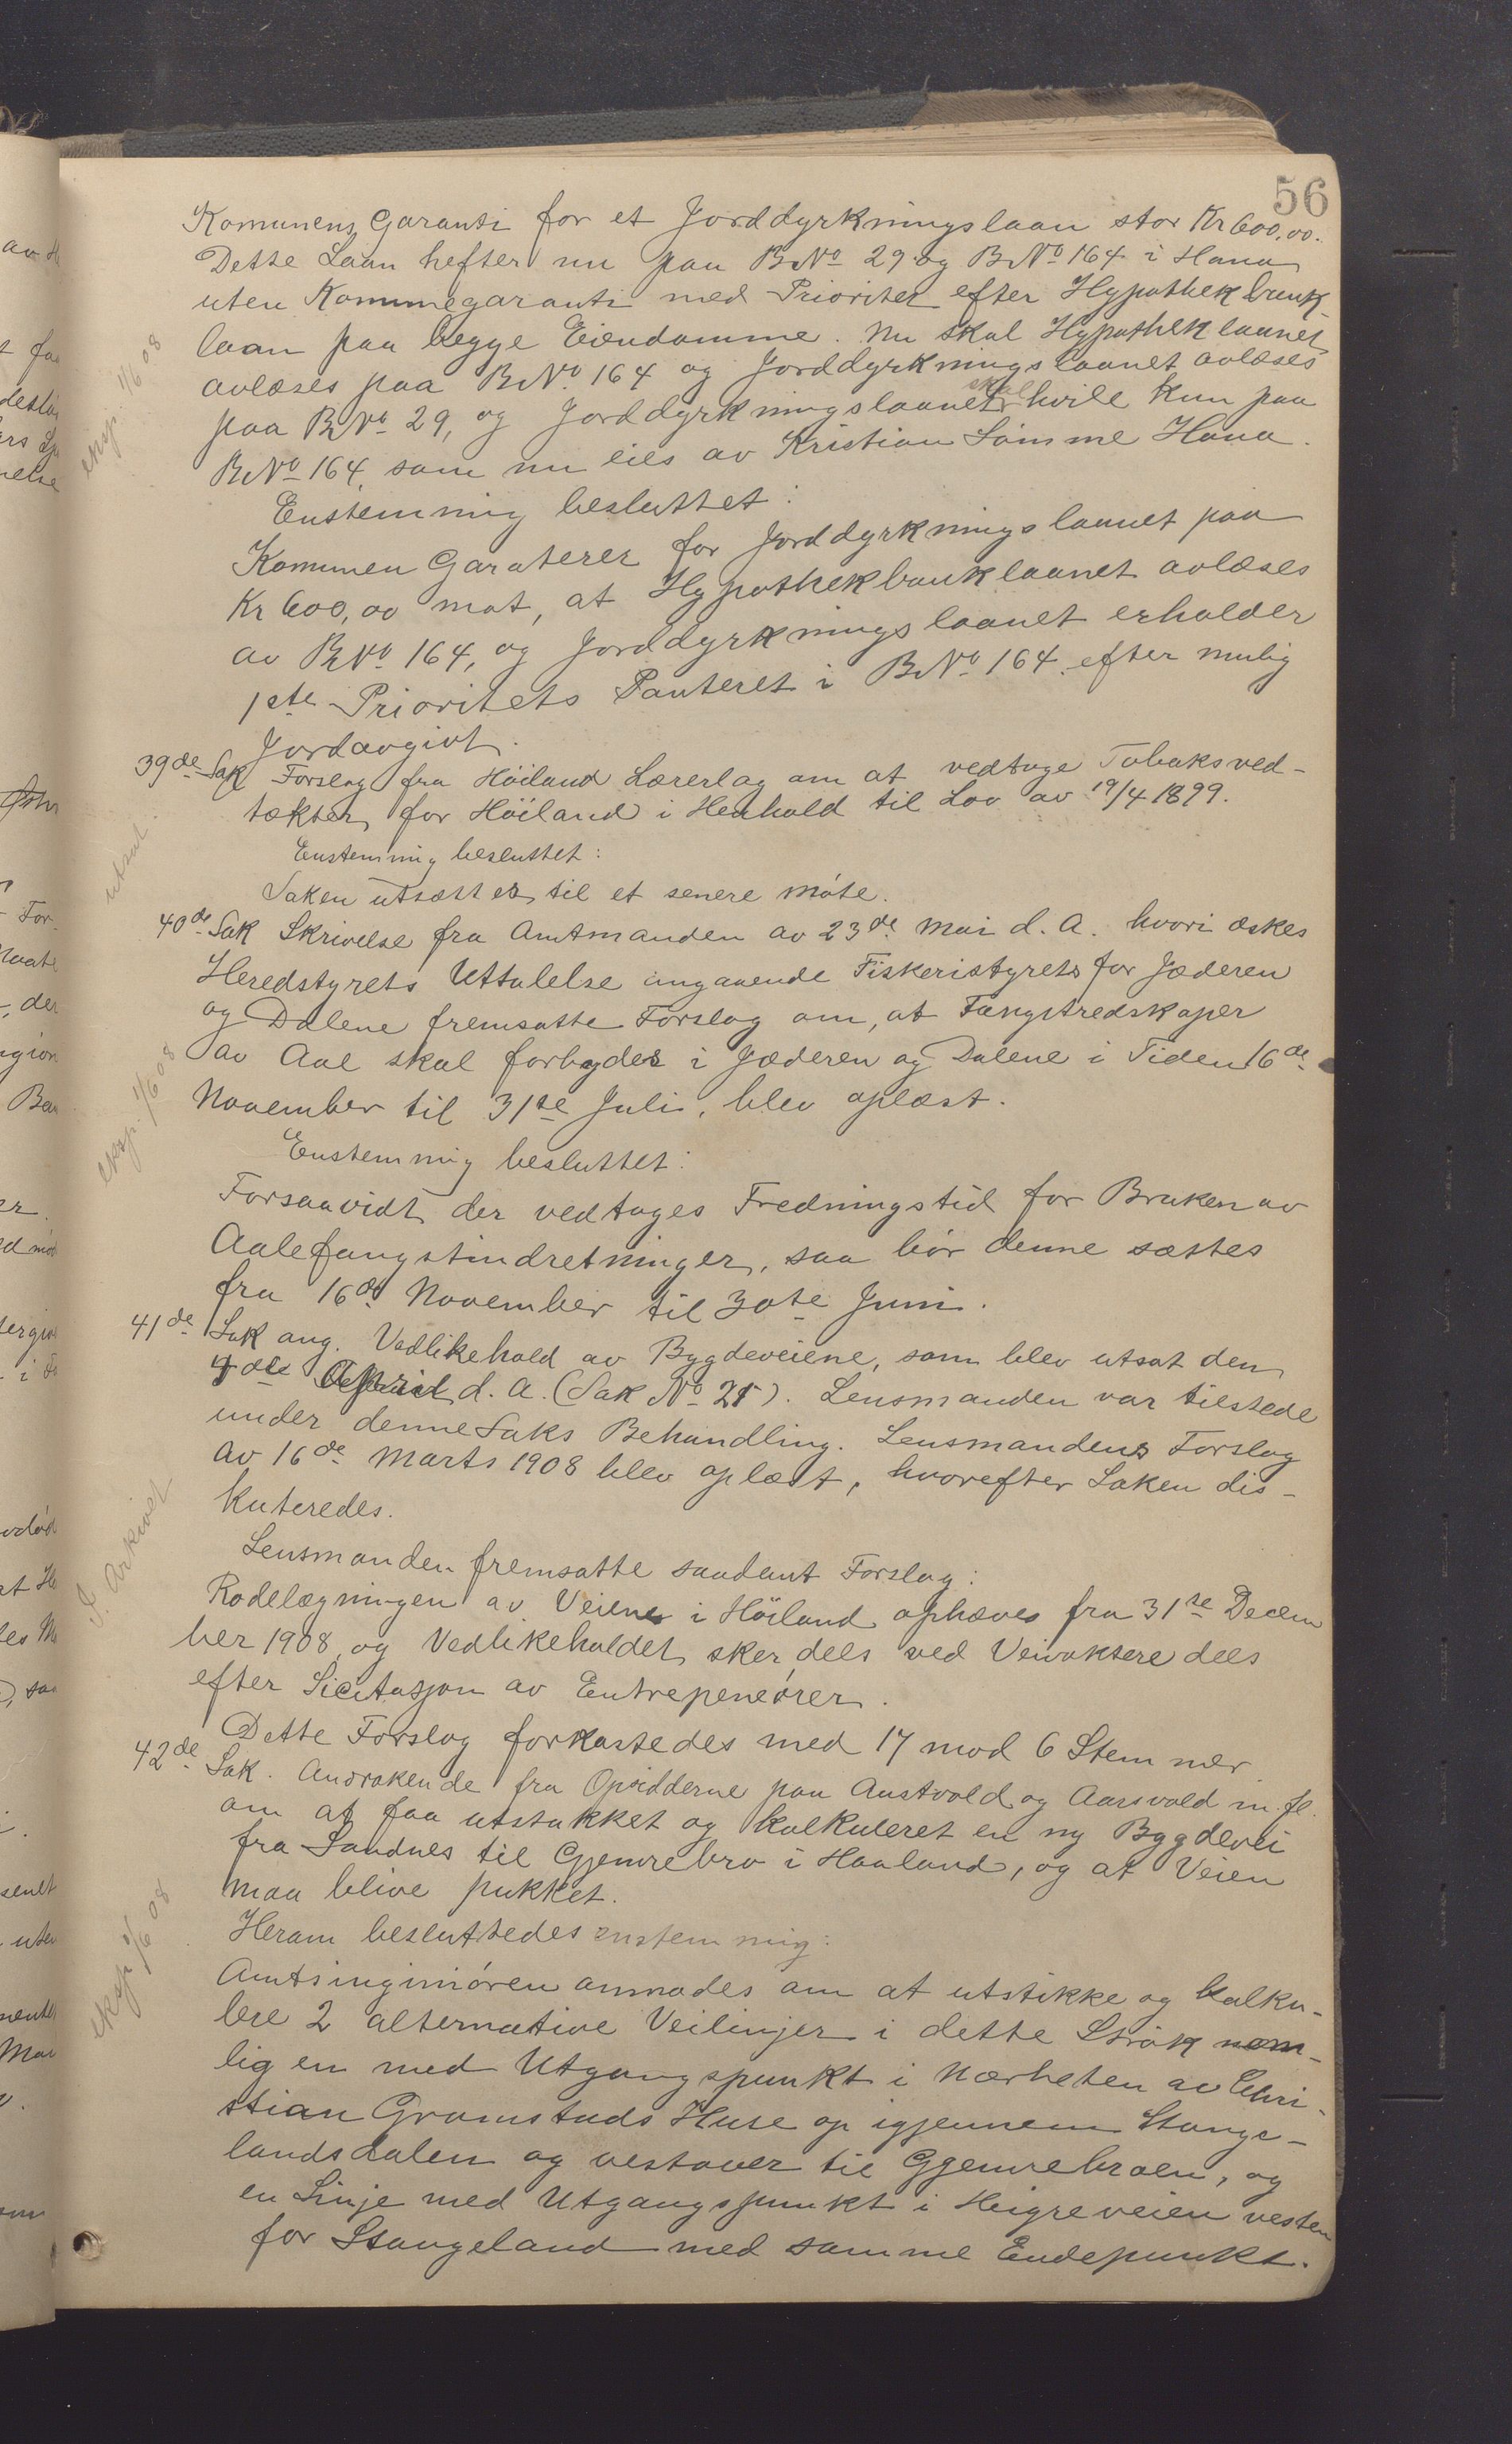 56
Komunens Garanti for et Jorddyrkningslaan stor Kr 600,00.
Dette Laan hefter nu paa BNo 29 og BNo 164 i Hana
uten Kommunegaranti med Prioritet efter Hypothekbank-
laan paa begge Eiendomme. Nu skal Hypotheklaanet
avløses paa BNo 164 og Jorddyrkningslaanet avløses
paa BNo 29, og Jorddyrkningslaanet skal hvile kun paa
BNo 164, som nu eies av Kristian Sømme Hana.
Enstemmig besluttet:
Komunen Garaterer for Jorddyrkningslaanet paa
Kr 600,00 mot, at Hypothekbanklaanet avløses
av BNo 164, og Jorddyrkningslaanet erholder
1ste Prioritets Panteret i BNo 164 efter mulig
Jordavgivt.
39de Sak Forslag fra Höiland Lærerlag om at vedtage Tobaksved-
tækter for Höiland i Henhold til Lov av 19/4 1899.
Enstemmig besluttet:
Saken utsættes til et senere møte.
40de Sak Skrivelse fra Amtmanden av 23de Mai d. A. hvori æskes
Heredstyrets Uttalelse angaaende Fiskeristyrets for Jæderen
og Dalene fremsatte Forslag om, at Fangstredskaper
av Aal skal forbydes i Jæderen og Dalene i Tiden 16de
November til 31te Juli, blev oplæst.
Enstemmig besluttet:
Forsaavidt der vedtages Fredningstid for Bruken av
Aalefangstindretninger, saa bör denne sættes
fra 16de November til 30te Juni.
41de Sak ang. Vedlikehold av Bygdeveiene, som blev utsat den
4de April d. A. (Sak No 21). Lensmanden var tilstede
under denne Saks Behandling. Lensmandens Forslag
av 16de Marts 1908 blev oplæst, hvorefter Saken dis-
kuteredes.
Lensmanden fremsatte saadant Forslag:
Rodelægningen av Veiene i Höiland ophæves fra 31te Decem
ber 1908, og Vedlikeholdet sker dels ved Veivoktere dels
efter Licitasjon av Entrepenører.
Dette Forslag forkastedes med 17 mod 6 Stemmer
42de Sak. Andrakende fra Opsidderne paa Austvold og Aarsvold m. fl.
om at faa utstukket og kalkuleret en ny Bygdevei
fra Sandnes til Gjemrebro i Haaland, og at Veien
maa blive pukket.
Herom besluttedes enstemmig:
Amtsinginiören anmodes om at utstikke og kalku-
lere 2 alternative Veilinjer i dette Strøk nem-
lig en med Utgangspunkt i Nærheten av Chri-
stian Gramstads Huse op igjennem Stange-
landsdalen og vestover til Gjemrebroen, og
en Linje med Utgangspunkt i Heigreveien vesten
for Stangeland med samme Endepunkt.
eksp. 1/6 08
utsat.
eksp. 1/6 08
Arkivet
eksp. 1/6 08